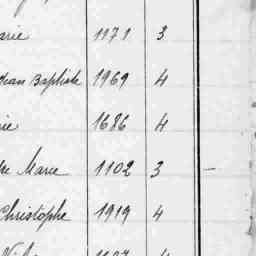 arie 1171 3
Jean Baptiste 1969 4
rie 1686 4
Marie 1102 3 –
Christophe 1919 4
4